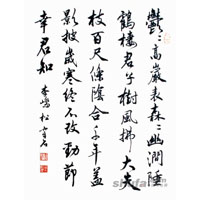 鬱〻高巖表森〻幽澗陲
鶴棲君子樹風拂大夫
枝百尺條陰合千年蓋
影披歲寒終不改勁節
幸君知
李嶠松